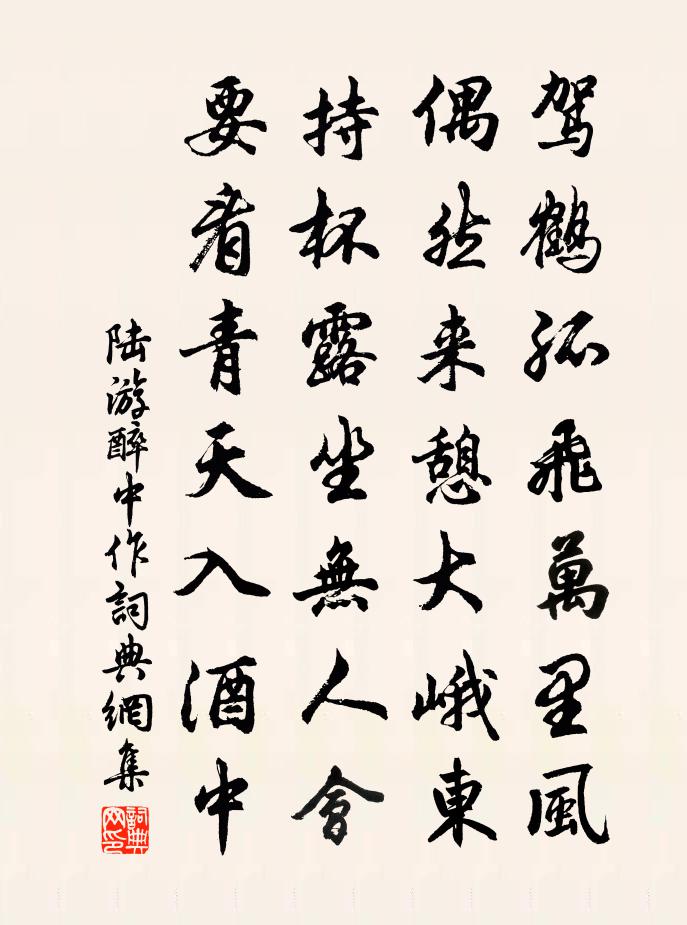 驾鶴孤飛萬里風
偶然来憩大峨東
持杯露坐無人會
要看青天入酒中
陆游醉中作詞典網集
詞典網印